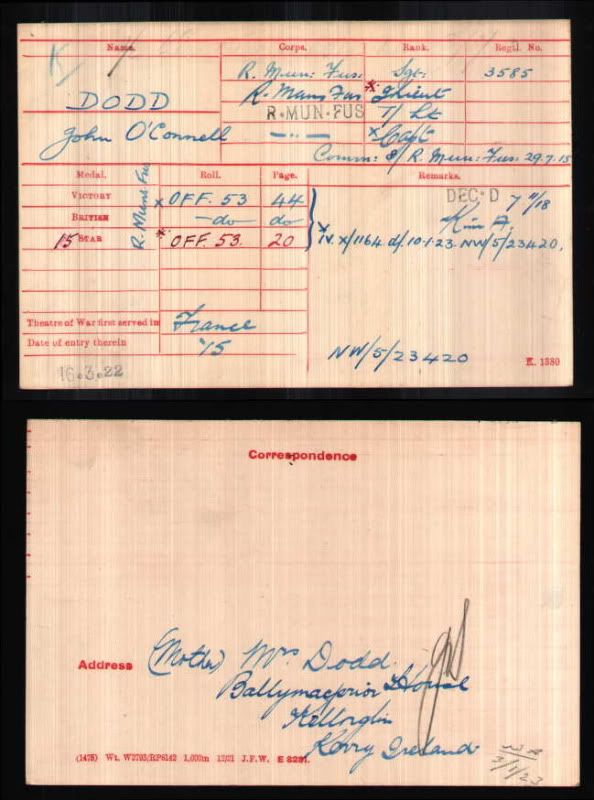 Name. Corps. Rank. Regtl. No.
R. Mun: Fus: Sgt: 3585
DODD R. Muns Fus * 2/Lieut
R·MUN·FUS T/ Lt
John O'Connell — " — x Capt
Comm: R. Mun: Fus: 29.7.15
Medal. Roll. Page. Remarks.
R. Muns Fus
VICTORY x OFF. 53 44 DEC·D 7 11/18
BRITISH —do— do Kin A.
15 STAR * OFF. 53. 20 * IV. X/1164 d/. 10-1-23. NW/5/23420.
Theatre of War first served in France
Date of entry therein '15 NW/5/23420
16.3.22 K. 1380
Correspondence
Address (Mother) Mrs Dodd.
Ballymacprior House
Killorglin
Kerry Ireland
(1475) Wt. W2703/RP6142 1,000m 12/21 J.F.W. E 8291.
3/1/23